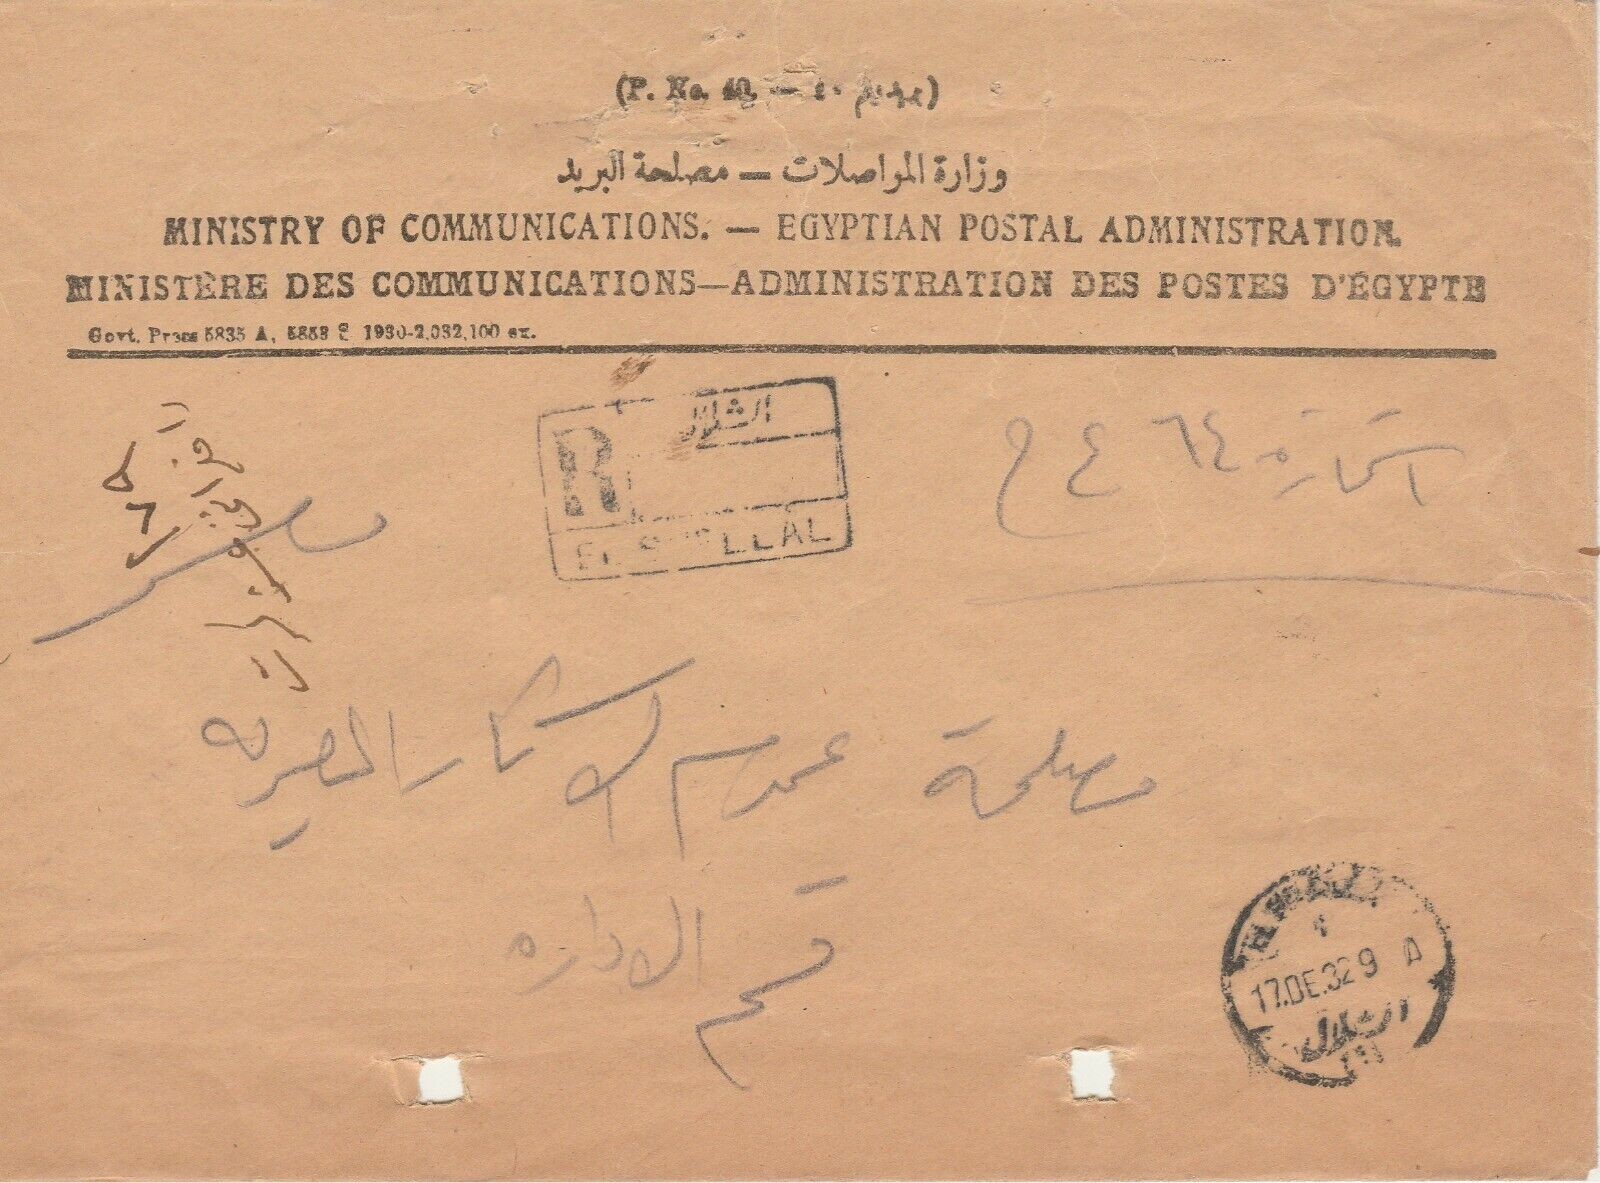 (P. No. 40. — ٤٠
وزارة المواصلات — مصلحة البريد
MINISTRY OF COMMUNICATIONS. — EGYPTIAN POSTAL ADMINISTRATION.
MINISTÈRE DES COMMUNICATIONS—ADMINISTRATION DES POSTES D'ÉGYPTE
Govt. Press 5835 A, 1930-2,032,100 ex.
الشلال
R
EL SHELLAL
استمارة ٦٤ ع ح
مصر
مصلحة عموم الاثار المصرية
قسم الادارة
17.DE.32 9 A
الشلال